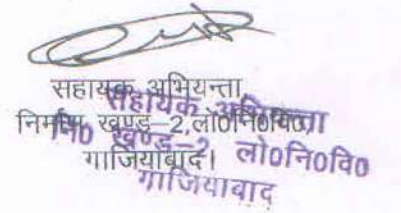 सहायक अभियन्ता,
निर्माण खण्ड–2,लो०नि०वि०,
गाजियाबाद।
सहायक अभियन्ता
नि० खण्ड–2 लो०नि०वि०
गाजियाबाद